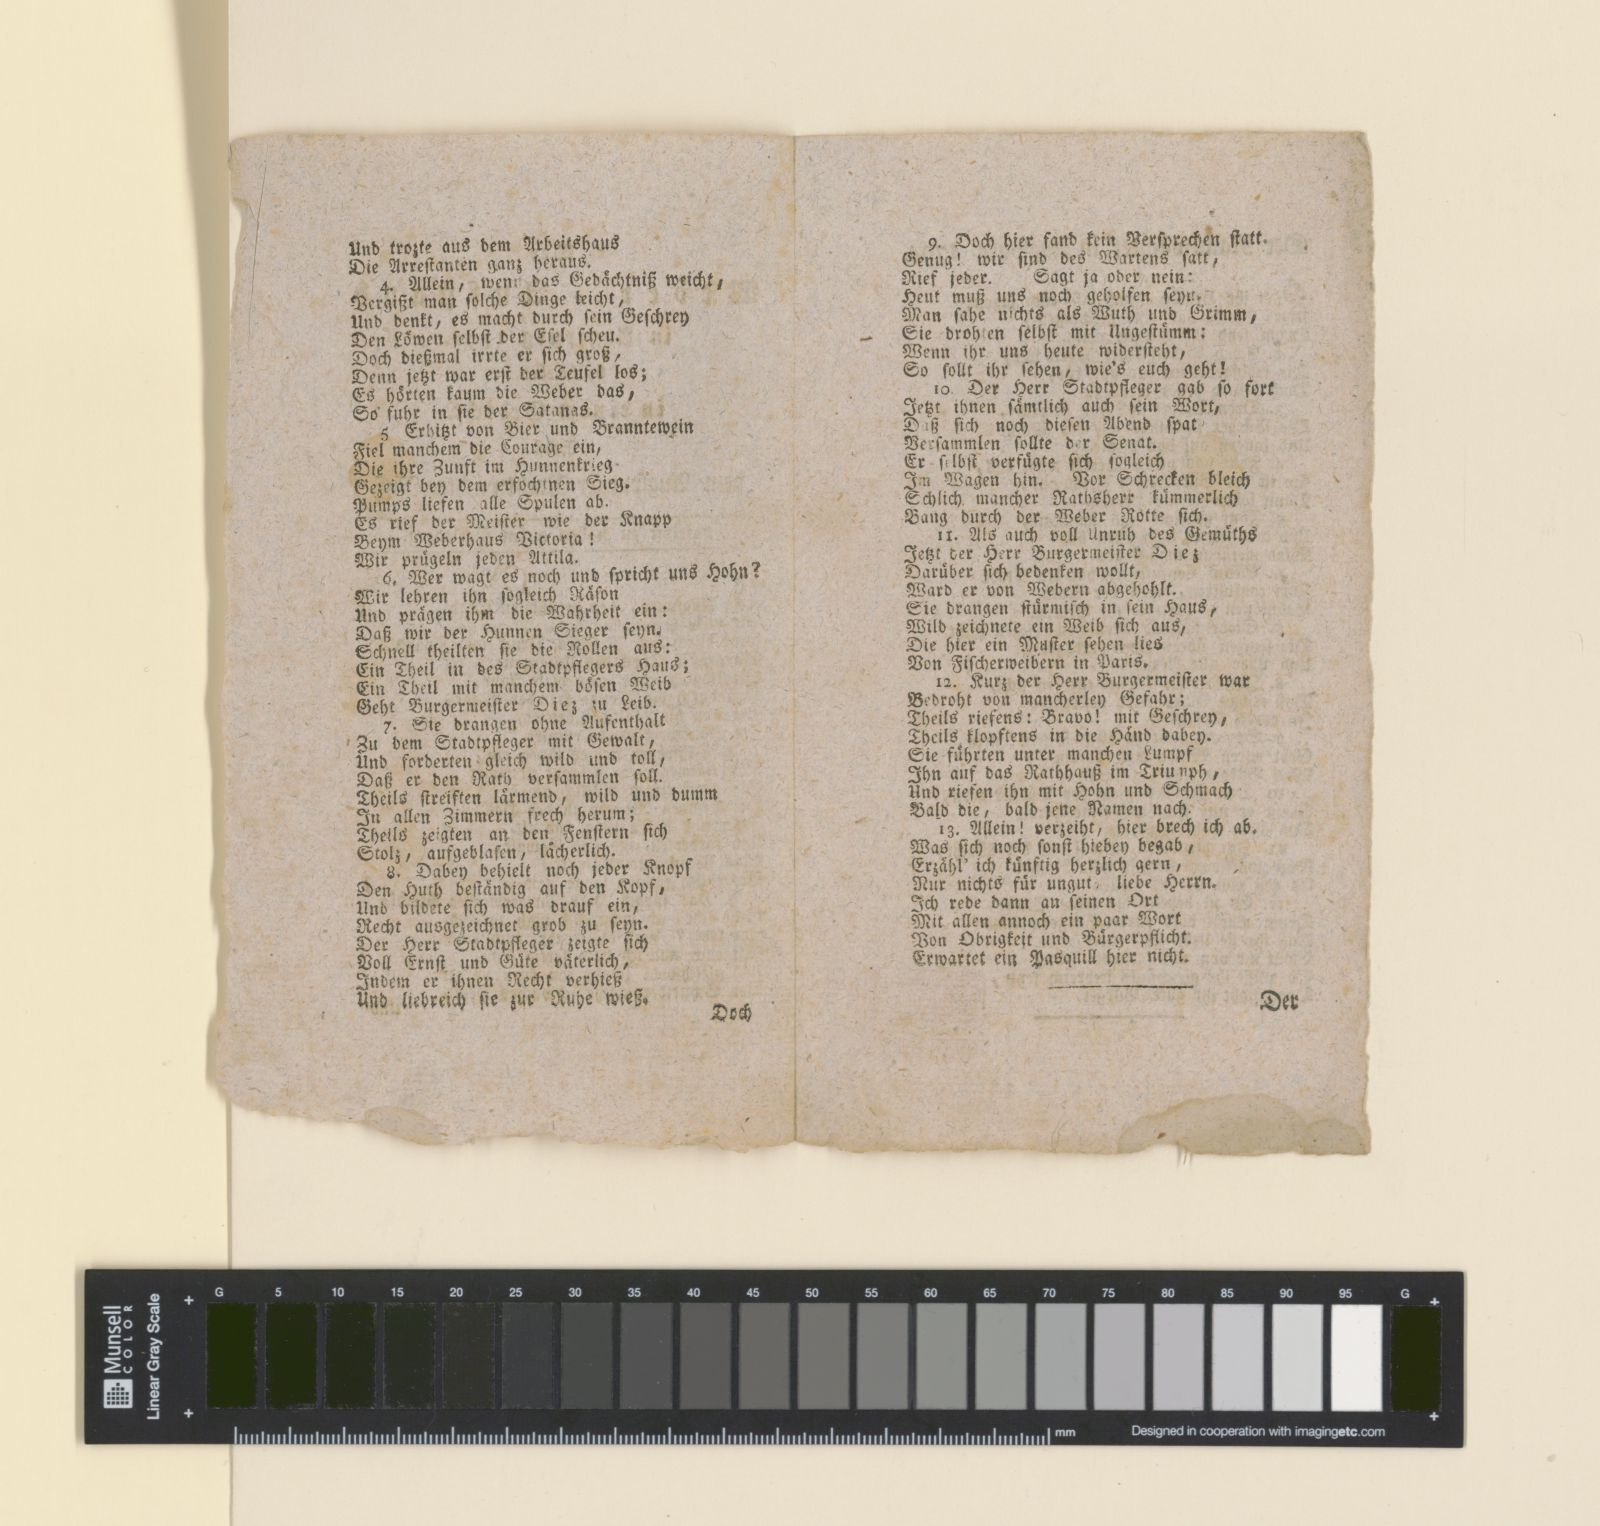 Und trozte aus dem Arbeitshaus
Die Arrestanten ganz heraus.
4. Allein, wenn das Gedächtniß weicht,
Vergißt man solche Dinge leicht,
Und denkt, es macht durch sein Geschrey
Den Löwen selbst der Esel scheu.
Doch dießmal irrte er sich groß,
Denn jetzt war erst der Teufel los;
Es hörten kaum die Weber das,
So fuhr in sie der Satanas.
5 Erhitzt von Bier und Branntewein
Fiel manchem die Courage ein,
Die ihre Zunft im Hunnenkrieg
Gezeigt bey dem erfochtnen Sieg.
Pumps liefen alle Spulen ab.
Es rief der Meister wie der Knapp
Beym Weberhaus Victoria!
Wir prügeln jeden Attila.
6. Wer wagt es noch und spricht uns Hohn?
Wir lehren ihn sogleich Räson
Und prägen ihm die Wahrheit ein:
Daß wir der Hunnen Sieger seyn.
Schnell theilten sie die Rollen aus:
Ein Theil in des Stadtpflegers Haus;
Ein Theil mit manchem bösen Weib
Geht Burgermeister Diez zu Leib.
7. Sie drangen ohne Aufenthalt
Zu dem Stadtpfleger mit Gewalt,
Und forderten gleich wild und toll,
Daß er den Rath versammlen soll.
Theils streiften lärmend, wild und dumm
In allen Zimmern frech herum;
Theils zeigten an den Fenstern sich
Stolz, aufgeblasen, lächerlich.
8. Dabey behielt noch jeder Knopf
Den Huth beständig auf den Kopf,
Und bildete sich was drauf ein,
Recht ausgezeichnet grob zu seyn.
Der Herr Stadtpfleger zeigte sich
Voll Ernst und Güte väterlich,
Indem er ihnen Recht verhieß
Und liebreich sie zur Ruhe wieß.
Doch
9. Doch hier fand kein Versprechen statt.
Genug! wir sind des Wartens satt,
Rief jeder. Sagt ja oder nein:
Heut muß uns noch geholfen seyn.
Man sahe nichts als Wuth und Grimm,
Sie drohten selbst mit Ungestümm:
Wenn ihr uns heute widersteht,
So sollt ihr sehen, wie's euch geht!
10. Der Herr Stadtpfleger gab so fort
Jetzt ihnen sämtlich auch sein Wort,
Daß sich noch diesen Abend spat
Versammlen sollte der Senat.
Er selbst verfügte sich sogleich
Im Wagen hin. Vor Schrecken bleich
Schlich mancher Rathsherr kümmerlich
Bang durch der Weber Rotte sich.
11. Als auch voll Unruh des Gemüths
Jetzt der Herr Burgermeister Diez
Darüber sich bedenken wollt,
Ward er von Webern abgehohlt.
Sie drangen stürmisch in sein Haus,
Wild zeichnete ein Weib sich aus,
Die hier ein Muster sehen lies
Von Fischerweibern in Paris.
12. Kurz der Herr Burgermeister war
Bedroht von mancherley Gefahr;
Theils riefens: Bravo! mit Geschrey,
Theils klopftens in die Händ dabey.
Sie führten unter manchen Lumpf
Ihn auf das Rathhauß im Triumph,
Und riefen ihn mit Hohn und Schmach
Bald die, bald jene Namen nach.
13. Allein! verzeiht, hier brech ich ab.
Was sich noch sonst hiebey begab,
Erzähl' ich künftig herzlich gern,
Nur nichts für ungut, liebe Herrn.
Ich rede dann an seinen Ort
Mit allen annoch ein paar Wort
Von Obrigkeit und Bürgerpflicht.
Erwartet ein Pasquill hier nicht.
Der
Munsell
COLOR
Linear Gray Scale
G 5 10 15 20 25 30 35 40 45 50 55 60 65 70 75 80 85 90 95 G
mm
Designed in cooperation with imagingetc.com